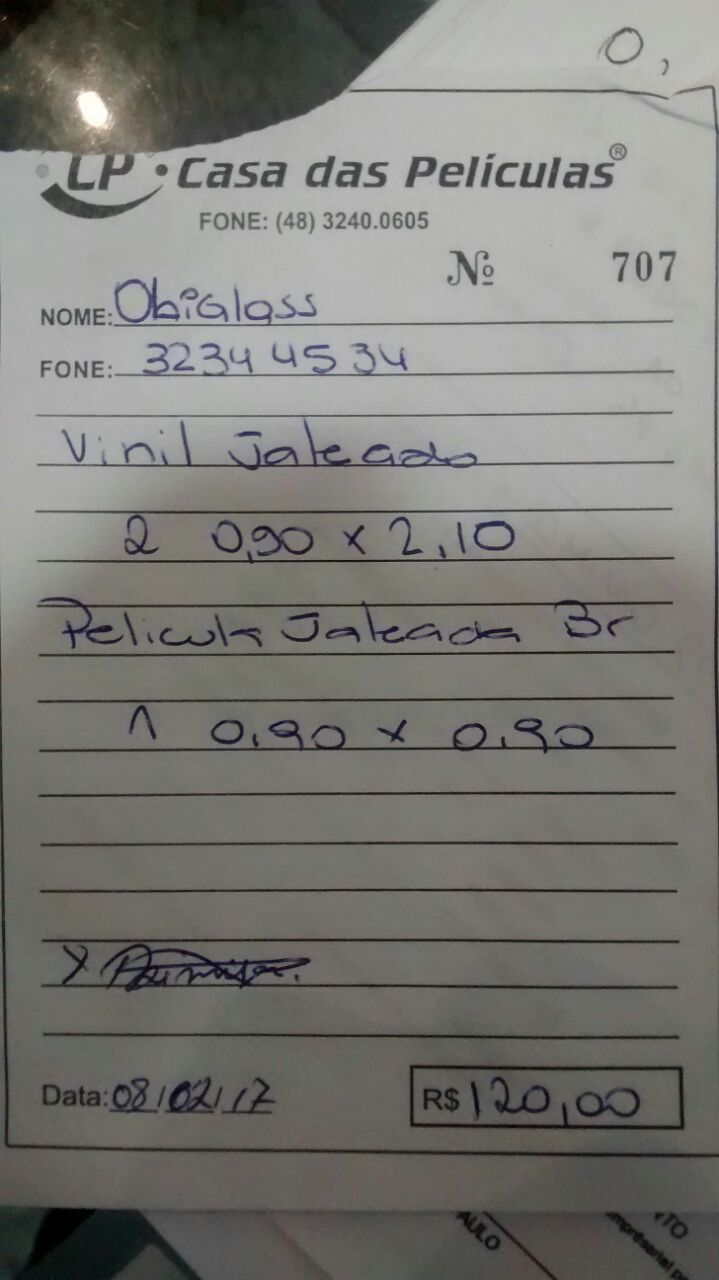 0,
LP · Casa das Películas®
FONE: (48) 3240.0605
Nº 707
NOME: ObiGlass
FONE: 3234 4534
Vinil Jateado
2 0,90 x 2,10
Pelicula Jateada Br
1 0,90 x 0,90
X
Data: 08/02/17 R$ 120,00
AULO
TO
mpresarial